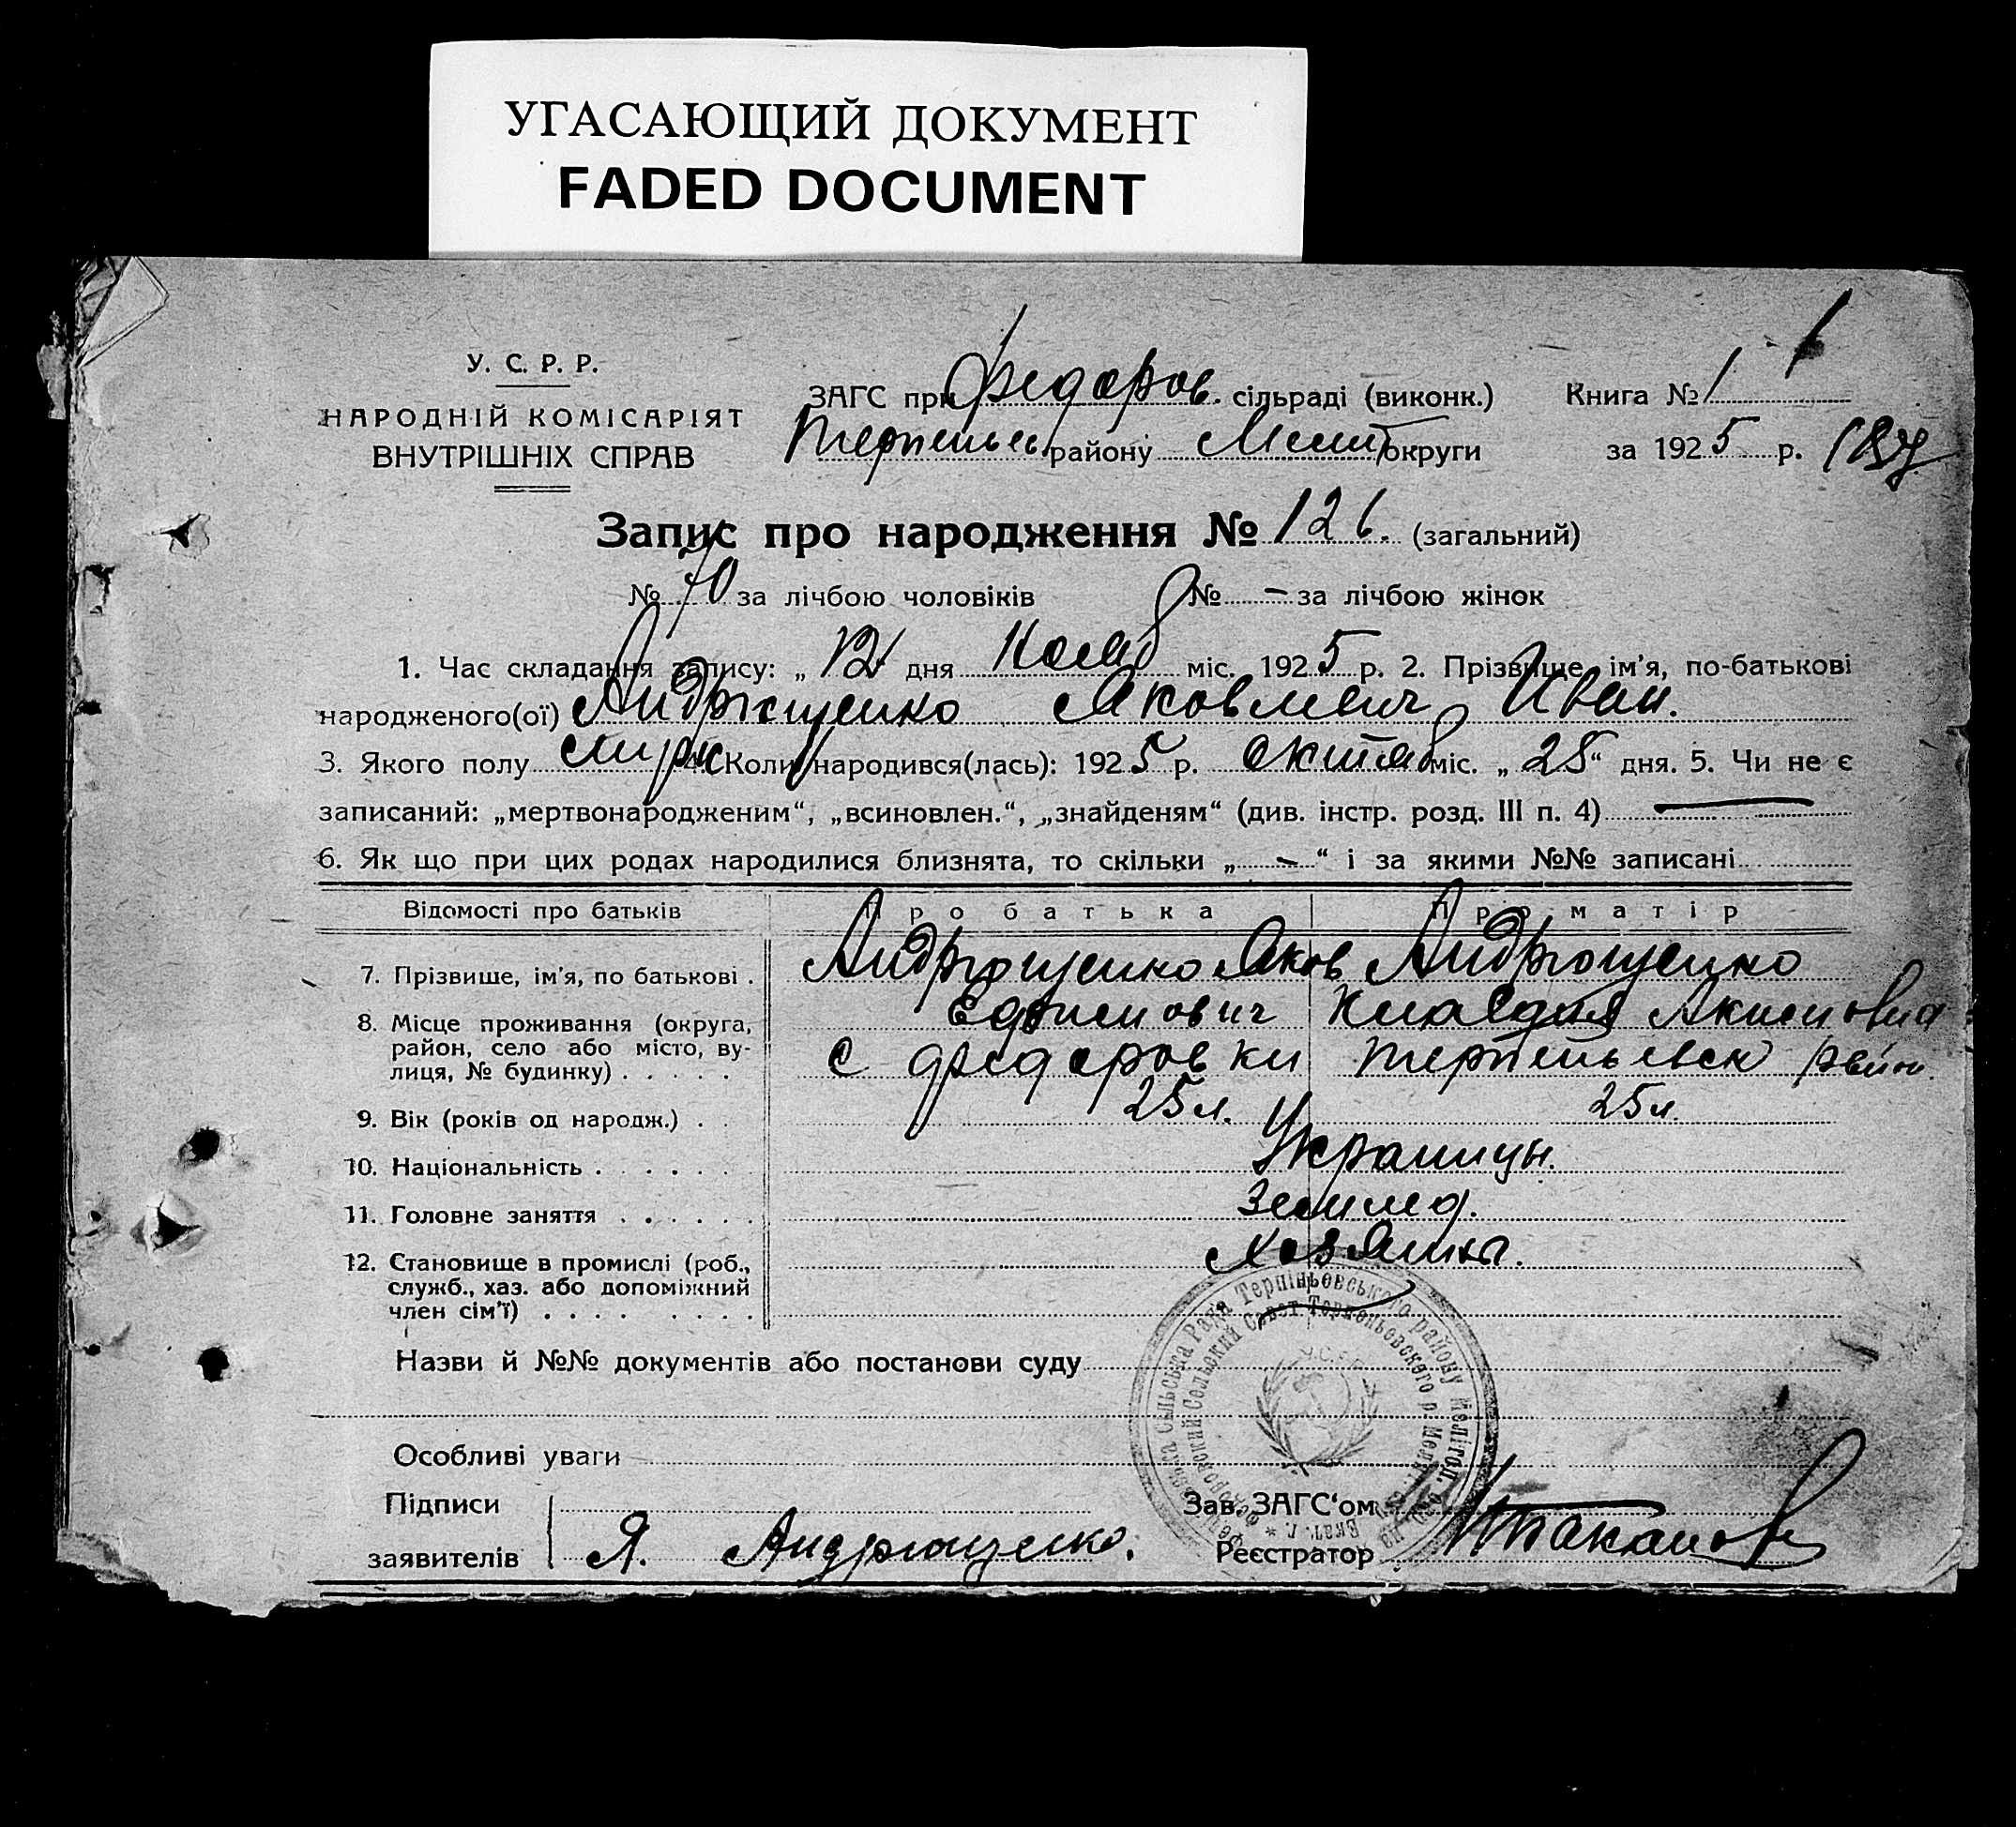 УГАСАЮЩИЙ ДОКУМЕНТ
FADED DOCUMENT
У. С. Р. Р.
НАРОДНІЙ КОМІСАРІЯТ
ВНУТРІШНІХ СПРАВ
ЗАГС при Федоров. сільраді (виконк.)
Терпеньев. району Мелит округи
Книга № 1
за 1925 р.
Запис про народження № 126. (загальний)
№ 70 за лічбою чоловіків № – за лічбою жінок
1. Час складання запису: „ 12 дня Нояб міс. 1925 р. 2. Прізвище, ім'я, по-батькові
народженого(ої) Андрющенко Яковлевич Иван.
3. Якого полу 4. Коли народився(лась): 1925 р. Октяб міс. „ 25 “ дня. 5. Чи не є
записаний: „мертвонародженим“, „всиновлен.“, „знайденям“ (див. інстр. розд. III п. 4) —
6. Як що при цих родах народилися близнята, то скільки „ – “ і за якими №№ записані
Відомості про батьків Про батька Про матір
7. Прізвище, ім'я, по батькові . Андрющенко Яков Андрющенко
Ефимович Клавдия Акимовна
8. Місце проживання (округа,
район, село або місто, ву-
лиця, № будинку) . . . . . С Федоровки Терпеньевск район.
9. Вік (років од народж.) . . 25 л. 25 л.
10. Національність . . . . . . Украинцы.
11. Головне заняття . . . . . . Землед.
12. Становище в промислі (роб.,
служб., хаз. або допоміжний
член сім'ї) . . . . . . . . . Хозяины.
Назви й №№ документів або постанови суду
Особливі уваги
Підписи
заявителів Я. Андрющенко.
Зав. ЗАГС'ом
Реєстратор
сільська Рада Терпіньовського району Мелітоп.
Федоровский Сельский Совет Терпеньевского р. Мелит
Екат. г. *
У.С.Р.Р.